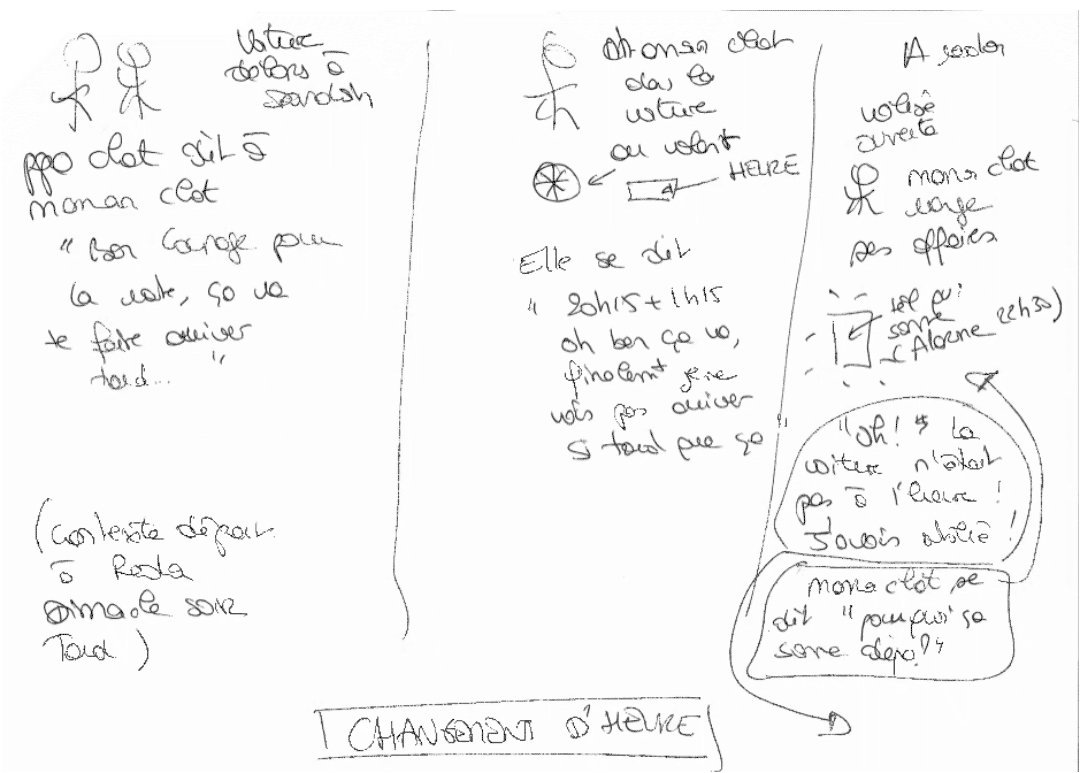 voiture
dehors à
ppo clot dit à
maman clot
" Bon courage pour
la route, ça va
te faire arriver
tard... "
(contexte départ
à
dimanche soir
Tard )
maman clot
dans la
voiture
au volant
HEURE
Elle se dit
" 20h15 + 1h15
oh ben ça va,
finalemt je ne
vais pas arriver
si tard que ça "
A
valise
ouverte
maman clot
range
ses affaires
tel qui
sonne
(Alarme 22h30)
"Oh! La
voiture n'était
pas à l'heure !
J'avais oublié !
maman clot se
dit "pourquoi ça
sonne déjà?"
CHANGEMENT D'HEURE